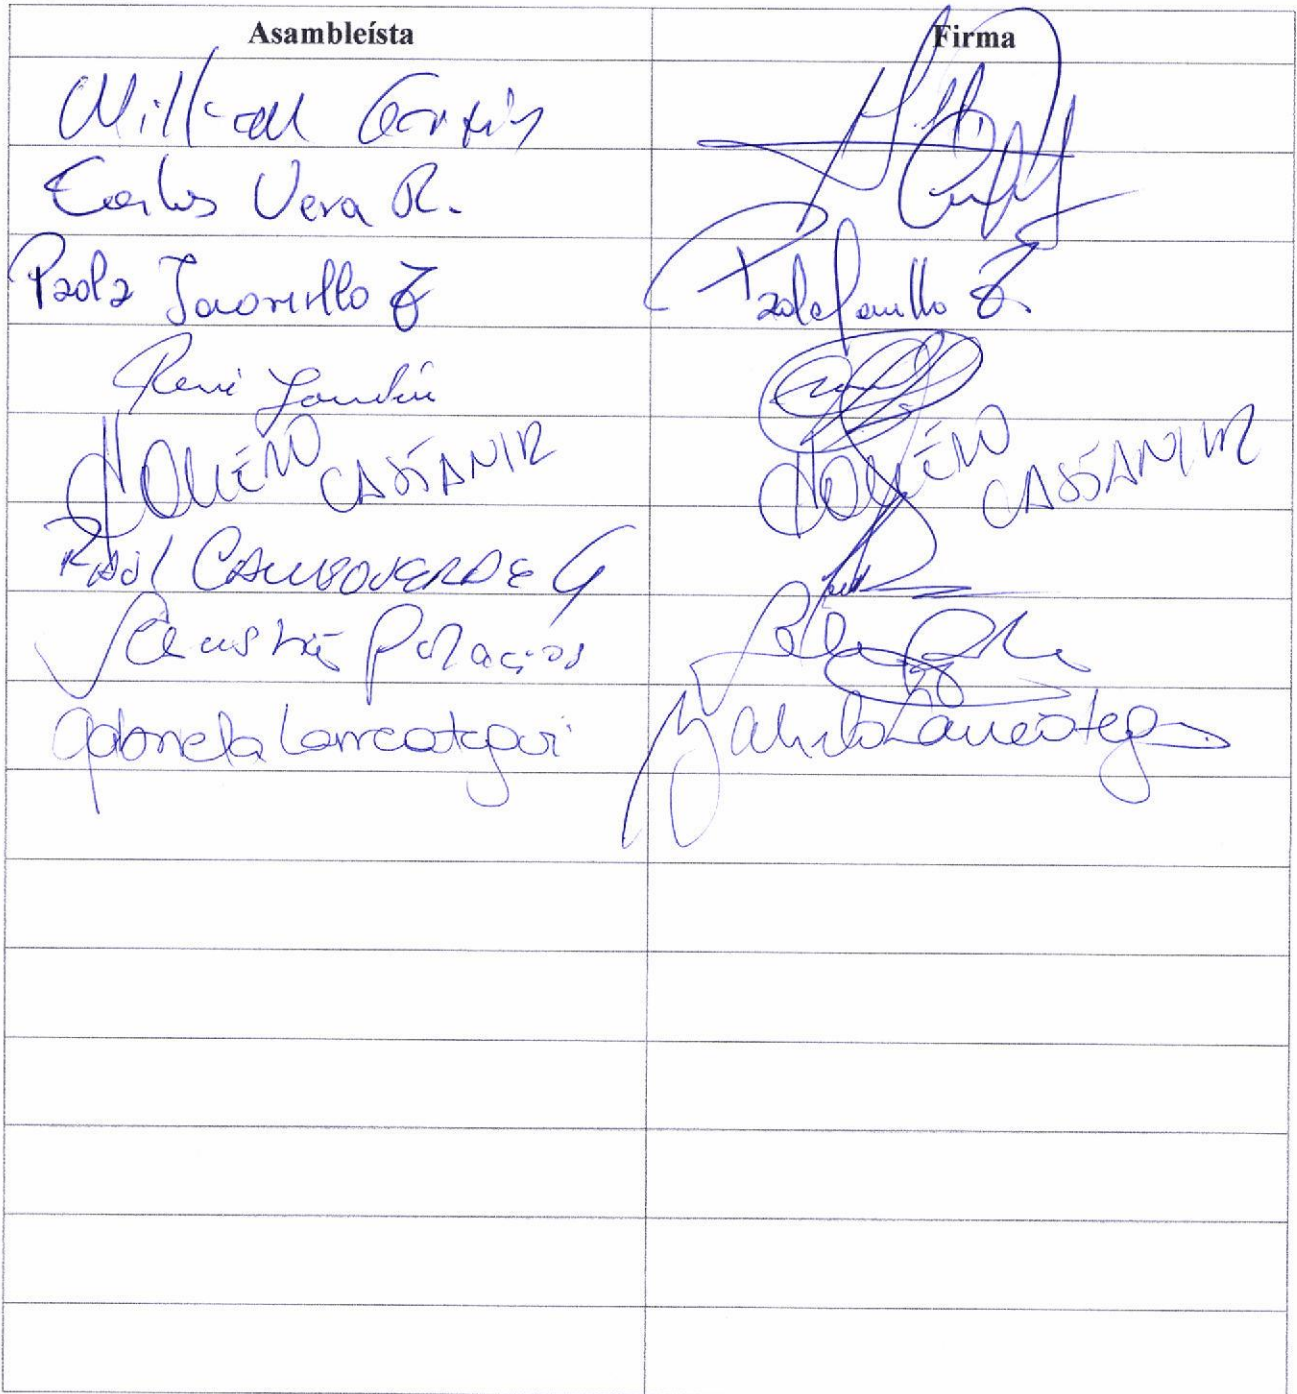 Asambleísta Firma
William Garzón
Carlos Vera R.
Paola Jaramillo Z Paola Jaramillo Z.
René Yandún
HOMERO CASTANIER HOMERO CASTANIER
RAÚL CAMPOVERDE G
Sebastián Palacios
Gabriela Larreategui Gabriela Larreategui